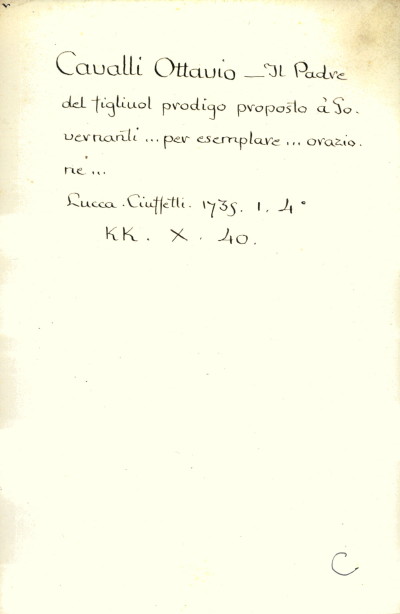 Cavalli Ottavio — Il Padre
del figliuol prodigo proposto à Go.
vernanti ... per esemplare ... orazio.
ne ...
Lucca . Ciuffetti . 1735 . 1 . 4°
KK . X . 40 .
C